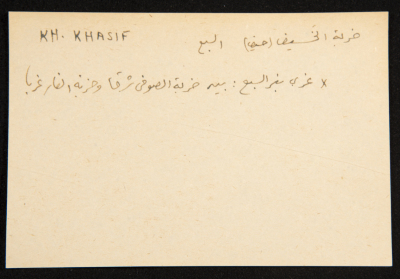 KH. KHASIF
خربة الخسيف (حنفا) السبع
x غربي بئر السبع: بين خربة الصوفى شرقا وخربة الفار غربا